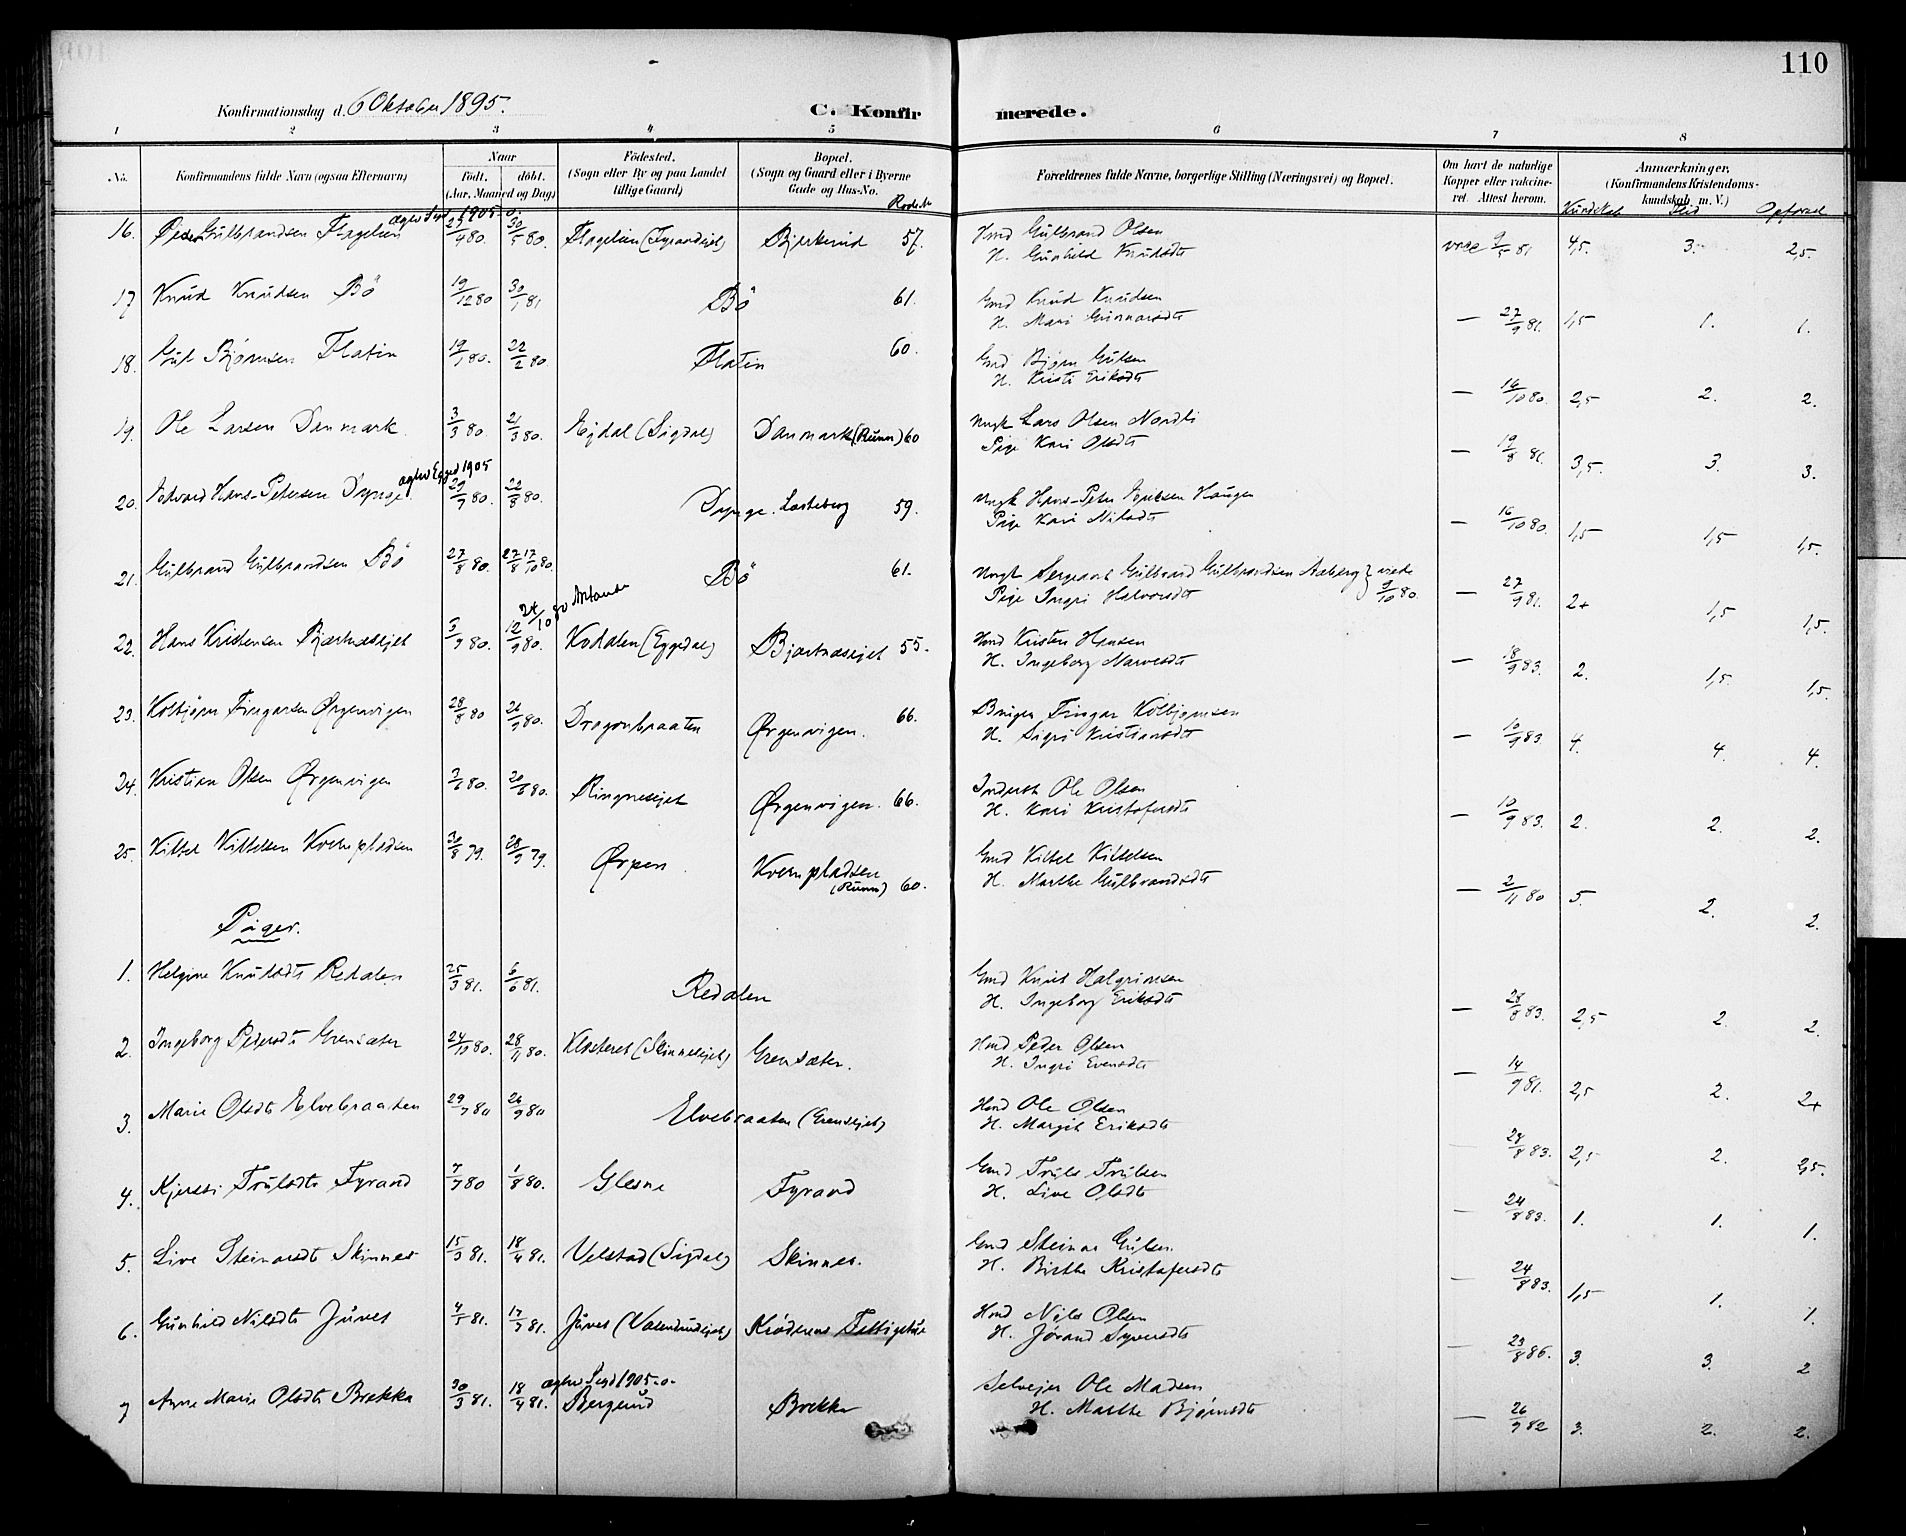 110
Konfirmationsdag d. 6 Oktober 1895. C. Konfirmerede.
1 2 3 4 5 6 7 8
No. Konfirmandens fulde Navn (ogsaa Efternavn) Naar født. døbt. (Aar, Maaned og Dag) Fødested. (Sogn eller By og paa Landet tillige Gaard) Bopæl. (Sogn og Gaard eller i Byerne Gade og Hus-No. Rode № Forældrenes fulde Navne, borgerlige Stilling (Næringsvei) og Bopæl. Om havt de naturlige Kopper eller vakcineret. Attest herom. Anmærkninger. (Konfirmandens Kristendomskundskab m. V.) Kundskab Flid Opførsel
16. Peder Gulbrandsen Flagelien 30/5 80. Flagelien (Fyrandeiet) Bjerkerud 57. Hmd Gulbrand Olsen 4,5. 3. 2,5.
H. Gunhild Knudsdt
17 Knud Knudsen Bö 19/12 80 30/1 81 Bö 61. Gmd Knud Knudsen — 27/9 81. 1,5 1. 1.
H. Mari Gunnarsdt
18. Gul Bjørnsen Flatin 19/1 80. 22/2 80. Flatin 60. Gmd Bjørn Gulsen — 16/10 80. 2,5 2. 2.
H. Kristi Eriksdt
19. Ole Larsen Danmark. 3/3 80. 21/3 80. Ejdal (Sigdal) Danmark (Ruun) 60 Ungk Lars Olsen Nordli — 19/8 81. 3,5. 3. 3.
Pige Kari Olsdt
20. Edvard Hans-Petersen Dynge 29/7 80. 22/8 80. Dynge. Lasteberg 59. Ungk Hans-Peter Eriksen Haugen — 16/10 80. 1,5 1,5 1,5.
Pige Kari Nilsdt
21. Gulbrand Gulbrandsen Bö 27/8 80. 27/8 17/10 80. Bö 61. Ungk Sergeant Gulbrand Gulbrandsen Aaberg } viede 9/10 80. — 27/9 81. 2+ 1,5 1,5.
Pige Ingri Halvorsdt
22. Hans Kristensen Bjærtnæseiet 3/9 80. 12/9 80. Kodalen (Eggedal) Bjærtnæseiet 55. Hmd Kristen Hansen — 18/9 83. 2. 1,5. 1,5.
H. Ingeborg Narvesdt
23. Kolbjørn Fingarsen Ørgenvigen 28/8 80 26/9 80. Dragonbraaten Ørgenvigen. 66. Bruger Fingar Kolbjørnsen — 10/9 83. 4. 4. 4.
H. Sigri Kristiansdt
24. Kristian Olsen Ørgenvigen 3/6 80. 20/6 80. Ringneseiet Ørgenvigen. 66. Inderst Ole Olsen — 10/9 83. 2. 2. 2.
H. Kari Kristofersdt
25. Kittel Kittelsen Kvernpladsen 30/8 79. 28/9 79. Ørpen. Kvernpladsen (Ruun) 60. Gmd Kittel Kittelsen — 2/11 80 5. 2. 2.
H. Marthe Gulbrandsdt
Piger.
1. Helgine Knutsdt Redalen 25/3 81. 6/6 81. Redalen Gmd Knut Halgrimsen — 28/8 83. 2,5 2. 2.
H. Ingeborg Eriksdt
2. Ingeborg Pedersdt Grensæter 24/10 80. 28/11 80. Klosteret (Skinneseiet) Grensæter. Hmd Peder Olsen — 14/9 81. 2,5 2. 2+
H. Ingri Evensdt
3. Marie Olsdt Elvebraaten 29/7 80 26/9 80 Elvebraaten (Greneiet) Hmd Ole Olsen — 28/8 83. 2,5 2. 2,5.
H. Margit Eriksdt
4. Kjersti Trulsdt Fyrand 7/7 80 1/8 80. Glesne Fyrand Gmd Truls Trulsen — 24/8 83. 1. 1. 1.
H. Live Olsdt
5. Live Steinarsdt Skinnes 15/3 81. 18/4 81. Velstad (Sigdal) Skinnes. Gmd Steinar Gulsen — 24/8 83. 1,5 1. 1.
H. Birthe Kristofersdt
6. Gunhild Nilsdt Juvet 4/5 81. 17/7 81. Juvet Krøderens Fattighus Hmd Nils Olsen — 23/8 86. 3. 3. 2
H. Jørand Syversdt
7 Anne Marie Olsdt Brekka 30/3 81. 18/4 81. Bergerud Brekka Selveier Ole Madsen — 26/9 82 3. 2. 2.
H. Marthe Bjørnsdt